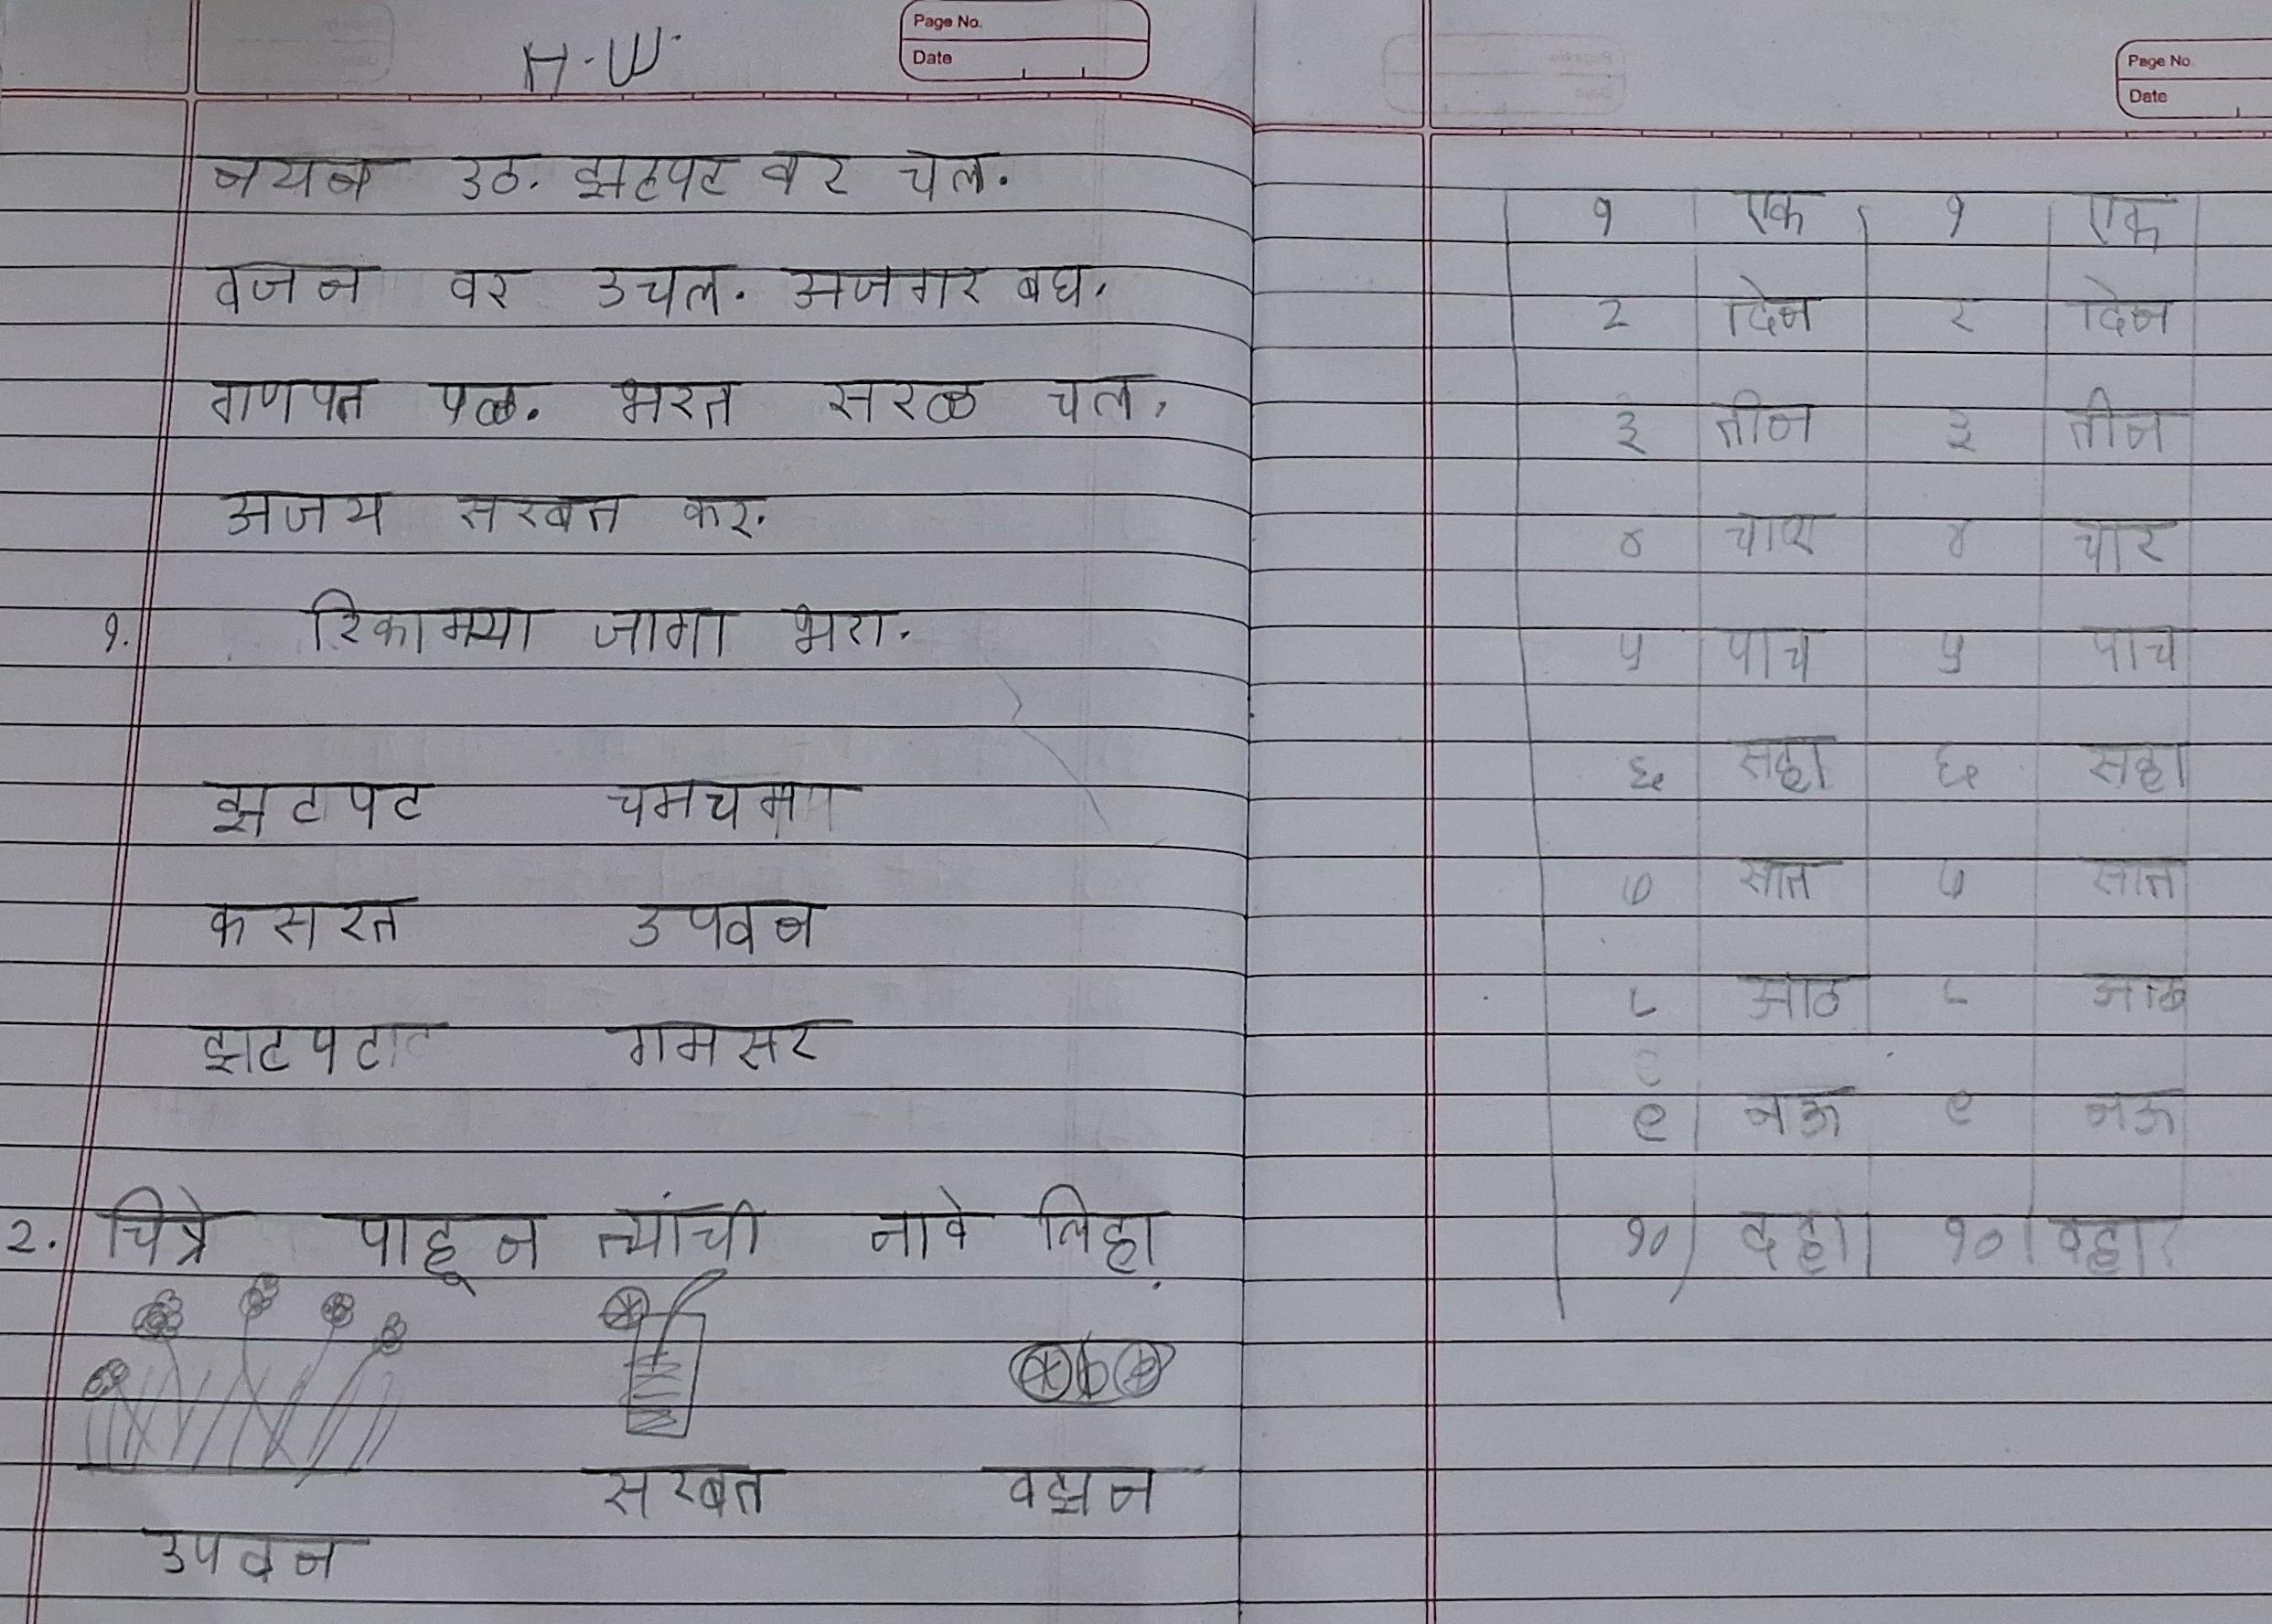 Page No.
Date
H.W.
नयन उठ. झटपट वर चल.
वजन वर उचल. अजगर बघ.
गणपत पळ. भरत सरळ चल.
अजय सरबत कर.
१. रिकाम्या जागा भरा.
झटपट चमचम
कसरत उपवन
झटपट गमसर
२. चित्रे पाहून त्यांची नावे लिहा.
सरबत वझन
उपवन
Page No.
Date
१ एक १ एक
२ दोन २ दोन
३ तीन ३ तीन
४ चार ४ चार
५ पाच ५ पाच
६ सहा ६ सहा
७ सात ७ सात
८ आठ ८ आठ
९ नऊ ९ नऊ
१० दहा १० दहा